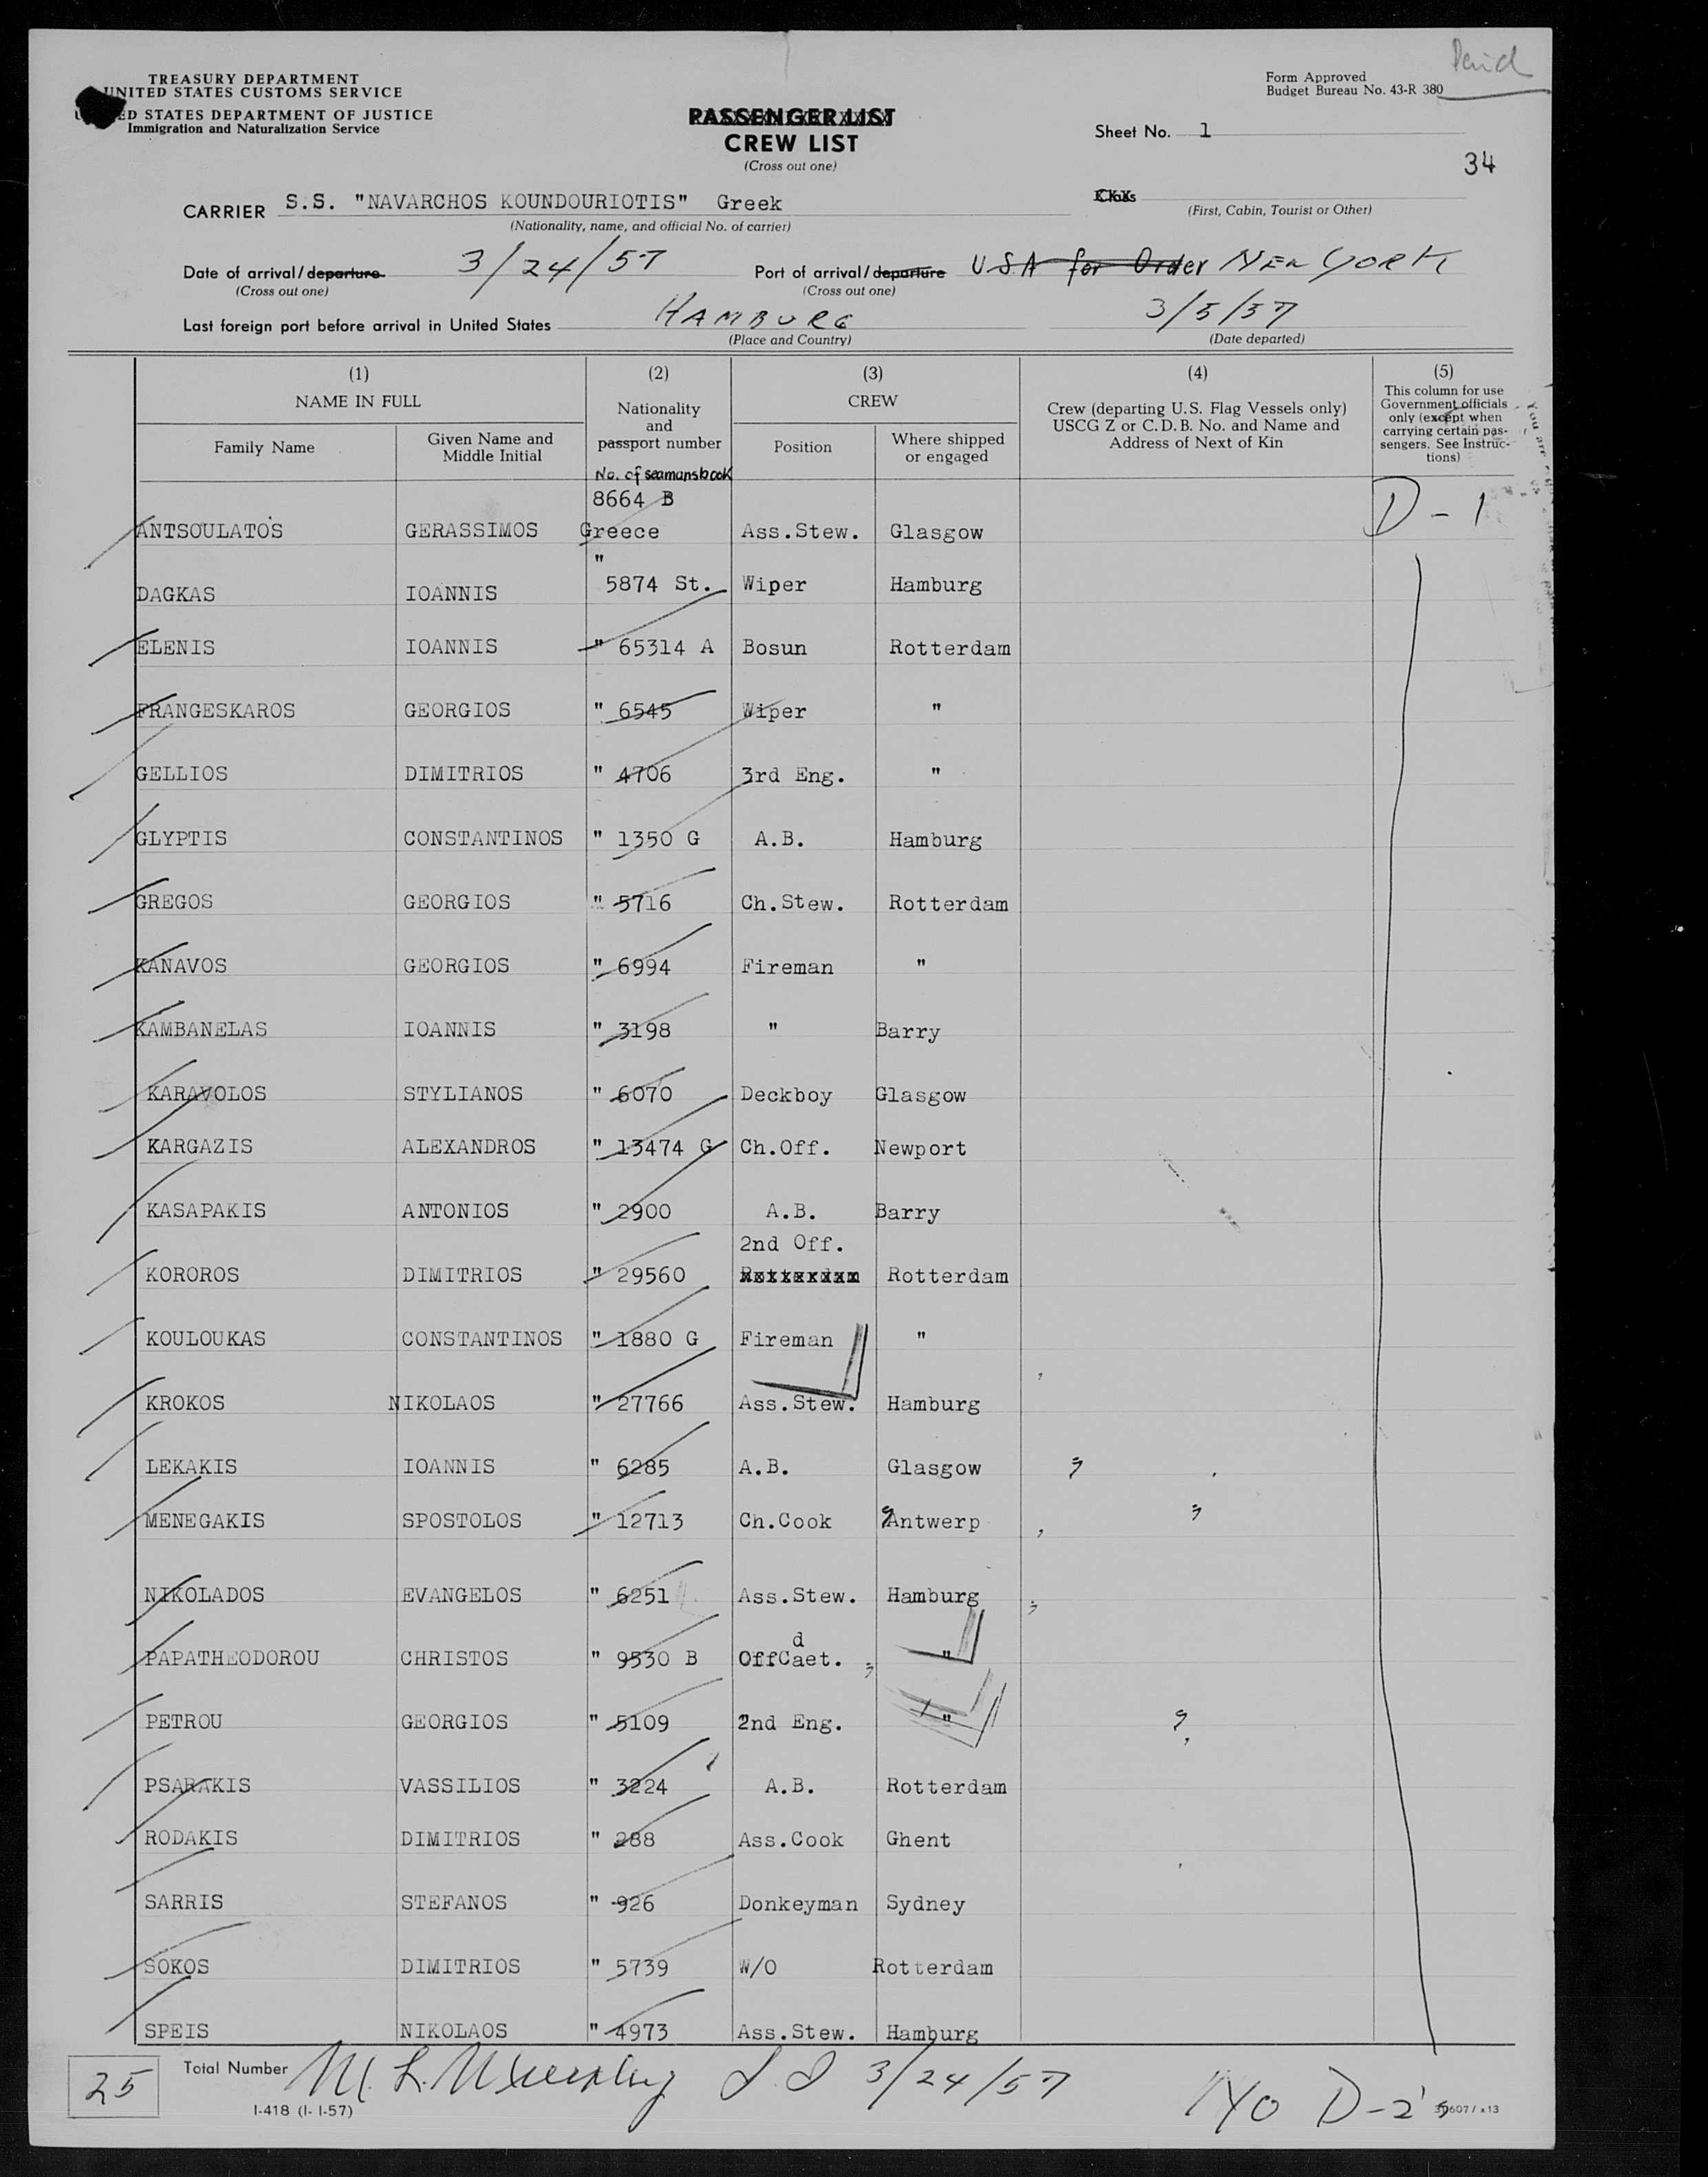 Paid
TREASURY DEPARTMENT
UNITED STATES CUSTOMS SERVICE
ED STATES DEPARTMENT OF JUSTICE
Immigration and Naturalization Service
Form Approved
Budget Bureau No. 43-R 380
PASSENGER LIST
CREW LIST
(Cross out one)
Sheet No. 1
34
CARRIER S.S. "NAVARCHOS KOUNDOURIOTIS" Greek
(Nationality, name, and official No. of carrier)
Class
(First, Cabin, Tourist or Other)
Date of arrival/departure 3/24/57 Port of arrival/departure USA for Order NEW YORK
(Cross out one) (Cross out one)
Last foreign port before arrival in United States HAMBURG 3/5/57
(Place and Country) (Date departed)
(1) (2) (3) (4) (5)
NAME IN FULL
Family Name
Given Name and
Middle Initial
Nationality
and
passport number
No. of seamansbook
CREW
Position
Where shipped
or engaged
Crew (departing U.S. Flag Vessels only)
USCG Z or C.D.B. No. and Name and
Address of Next of Kin
This column for use
Government officials
only (except when
carrying certain pas-
sengers. See Instruc-
tions)
8664 B
ANTSOULATOS GERASSIMOS Greece Ass.Stew. Glasgow D-1
"
DAGKAS IOANNIS 5874 St. Wiper Hamburg
ELENIS IOANNIS " 65314 A Bosun Rotterdam
FRANGESKAROS GEORGIOS " 6545 Wiper "
GELLIOS DIMITRIOS " 4706 3rd Eng. "
GLYPTIS CONSTANTINOS " 1350 G A.B. Hamburg
GREGOS GEORGIOS " 5716 Ch.Stew. Rotterdam
KANAVOS GEORGIOS " 6994 Fireman "
KAMBANELAS IOANNIS " 3198 " Barry
KARAVOLOS STYLIANOS " 6070 Deckboy Glasgow
KARGAZIS ALEXANDROS " 13474 G Ch.Off. Newport
KASAPAKIS ANTONIOS " 2900 A.B. Barry
2nd Off.
KOROROS DIMITRIOS " 29560 Rotterdam Rotterdam
KOULOUKAS CONSTANTINOS " 1880 G Fireman "
KROKOS NIKOLAOS " 27766 Ass.Stew. Hamburg
LEKAKIS IOANNIS " 6285 A.B. Glasgow
MENEGAKIS SPOSTOLOS " 12713 Ch.Cook Antwerp
NIKOLADOS EVANGELOS " 6251 Ass.Stew. Hamburg
d
PAPATHEODOROU CHRISTOS " 9530 B OffCaet. "
PETROU GEORGIOS " 5109 2nd Eng. "
PSARAKIS VASSILIOS " 3224 A.B. Rotterdam
RODAKIS DIMITRIOS " 288 Ass.Cook Ghent
SARRIS STEFANOS " 926 Donkeyman Sydney
SOKOS DIMITRIOS " 5739 W/O Rotterdam
SPEIS NIKOLAOS " 4973 Ass.Stew. Hamburg
25 Total Number 3/24/57
No D-2's
I-418 (1-1-57)